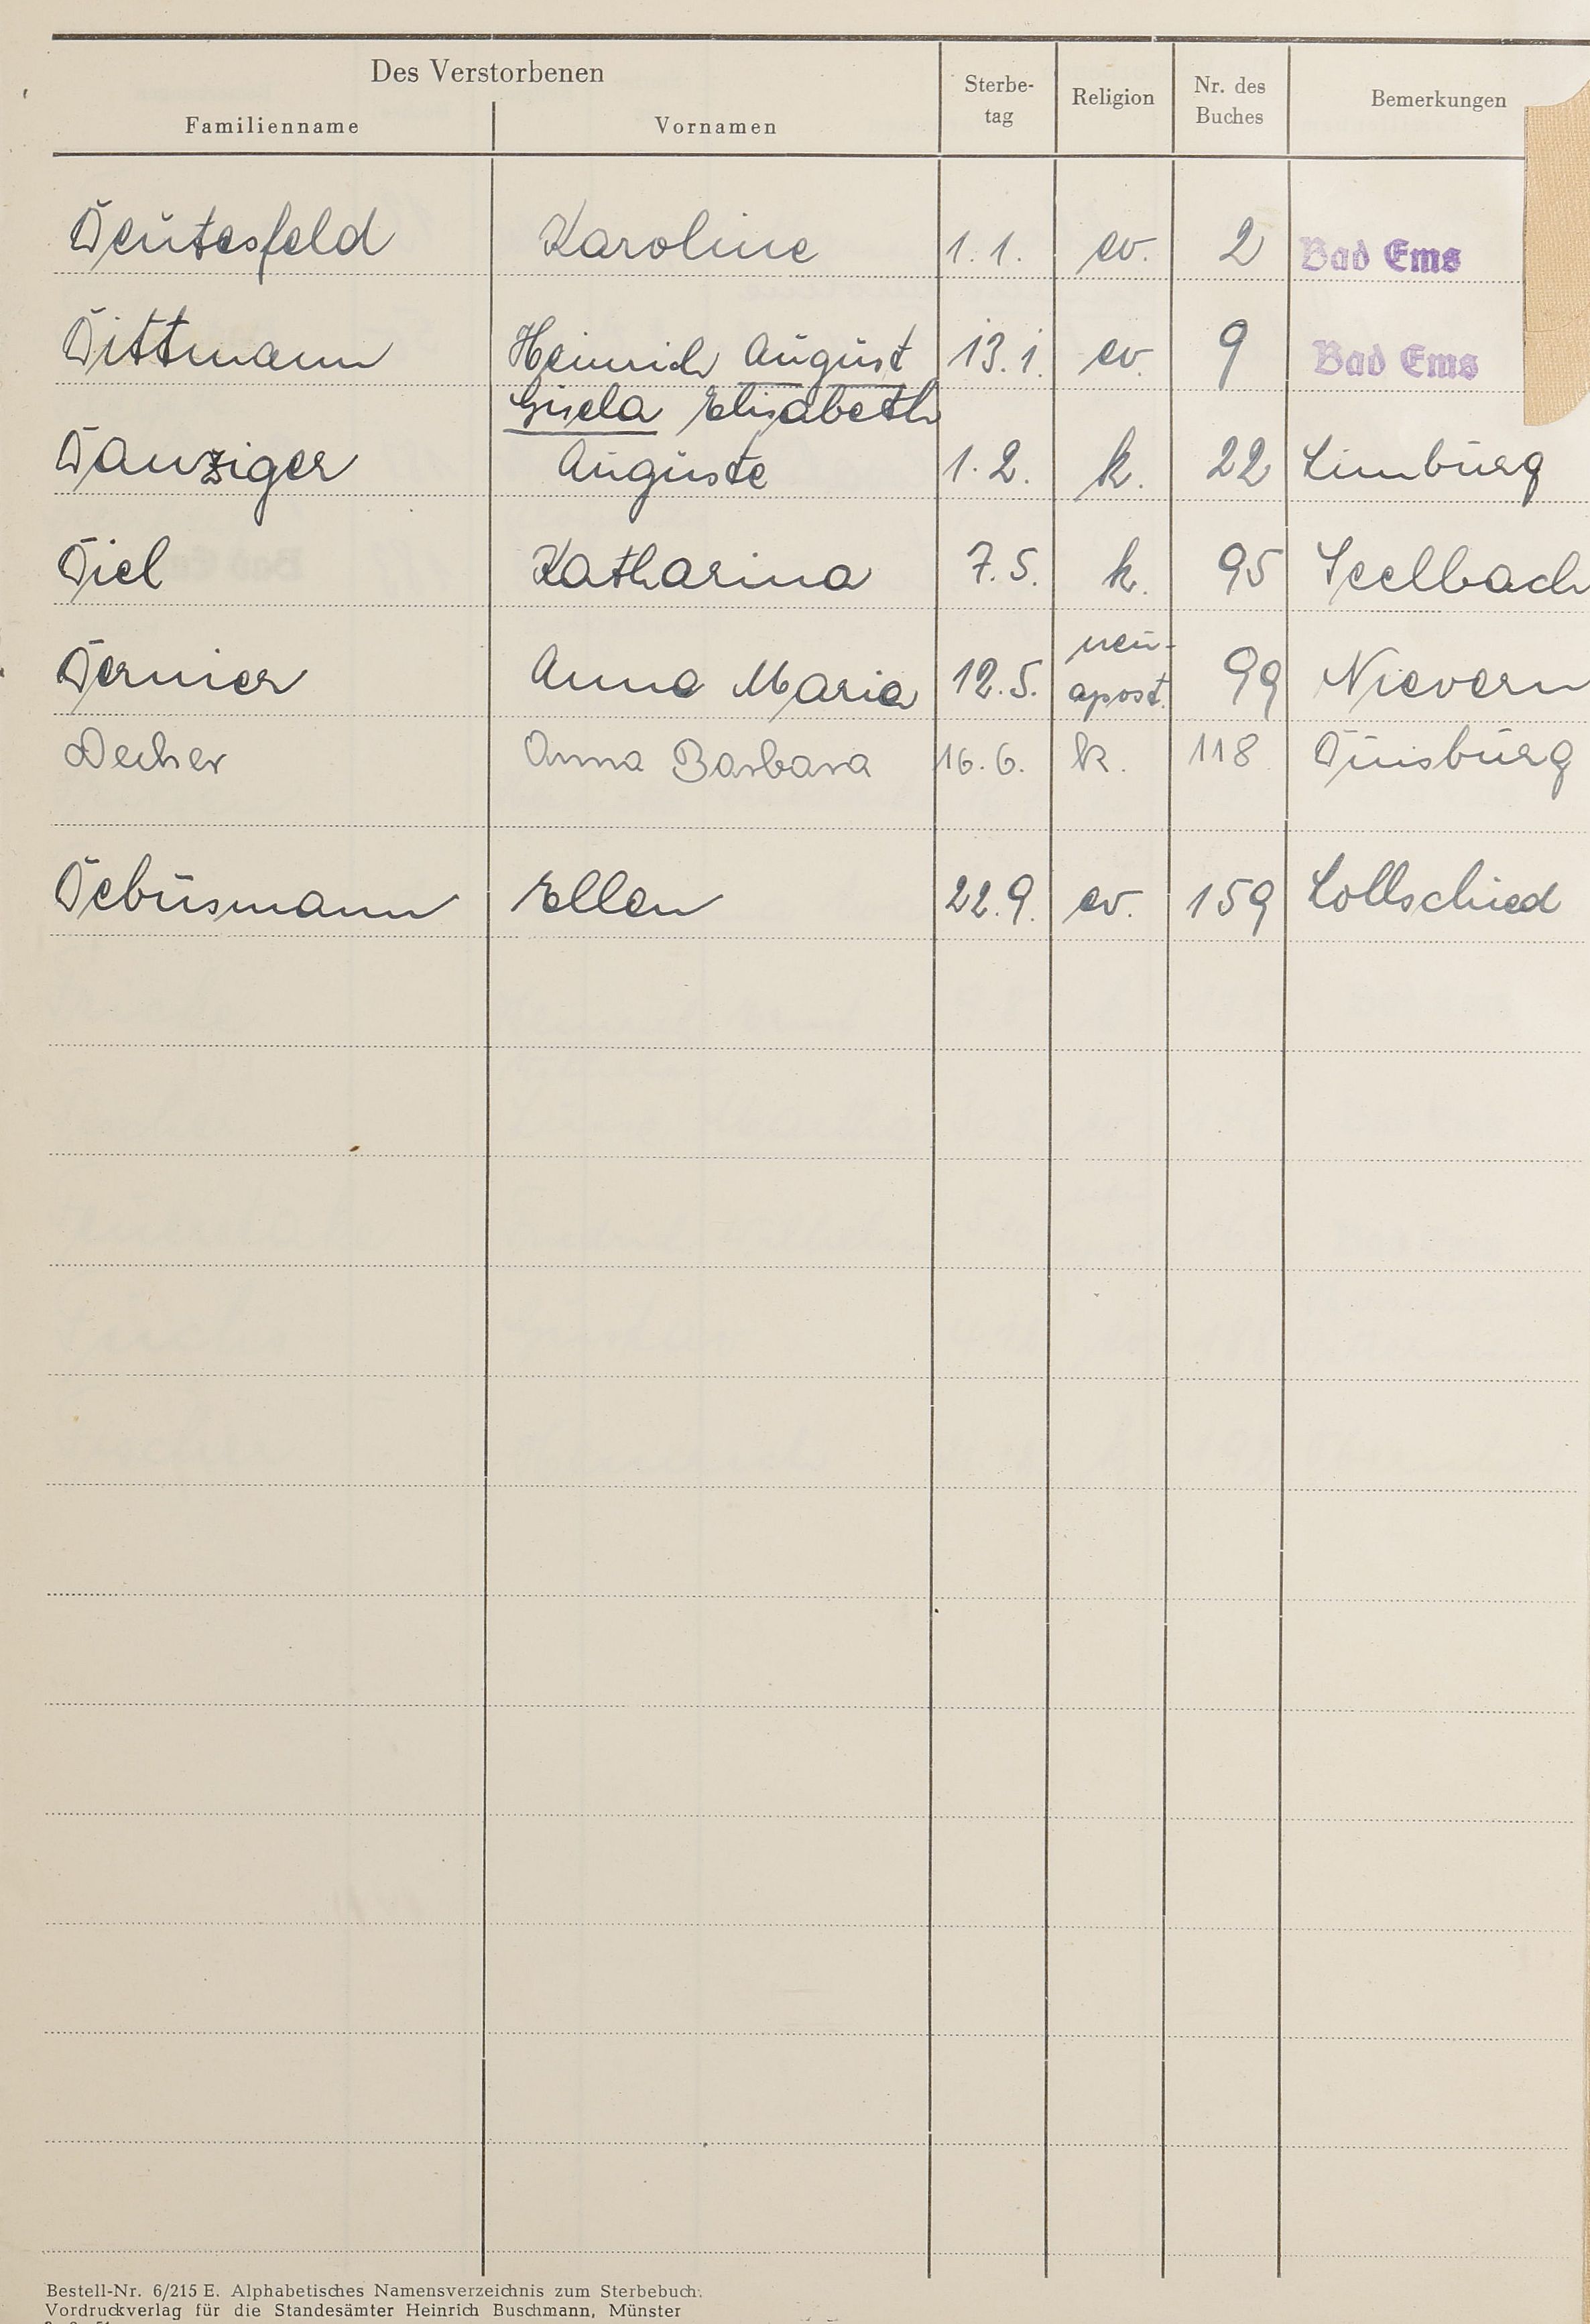 Des Verstorbenen
Familienname Vornamen Sterbe-tag Religion Nr. des Buches Bemerkungen
Deutesfeld Karoline 1.1. ev. 2 Bad Ems
Dittmann Heinrich August 13.1. ev. 9 Bad Ems
Gisela Elisabeth
Danziger Auguste 1.2. k. 22 Limburg
Diel Katharina 7.5. k. 95 Seelbach
neu-
Dernier Anna Maria 12.5. apost. 99 Nievern
Decher Anna Barbara 16.6. k. 118 Duisburg
Debusmann Ellen 22.9. ev. 159 Lollschied
Bestell-Nr. 6/215 E. Alphabetisches Namensverzeichnis zum Sterbebuch.
Vordruckverlag für die Standesämter Heinrich Buschmann, Münster